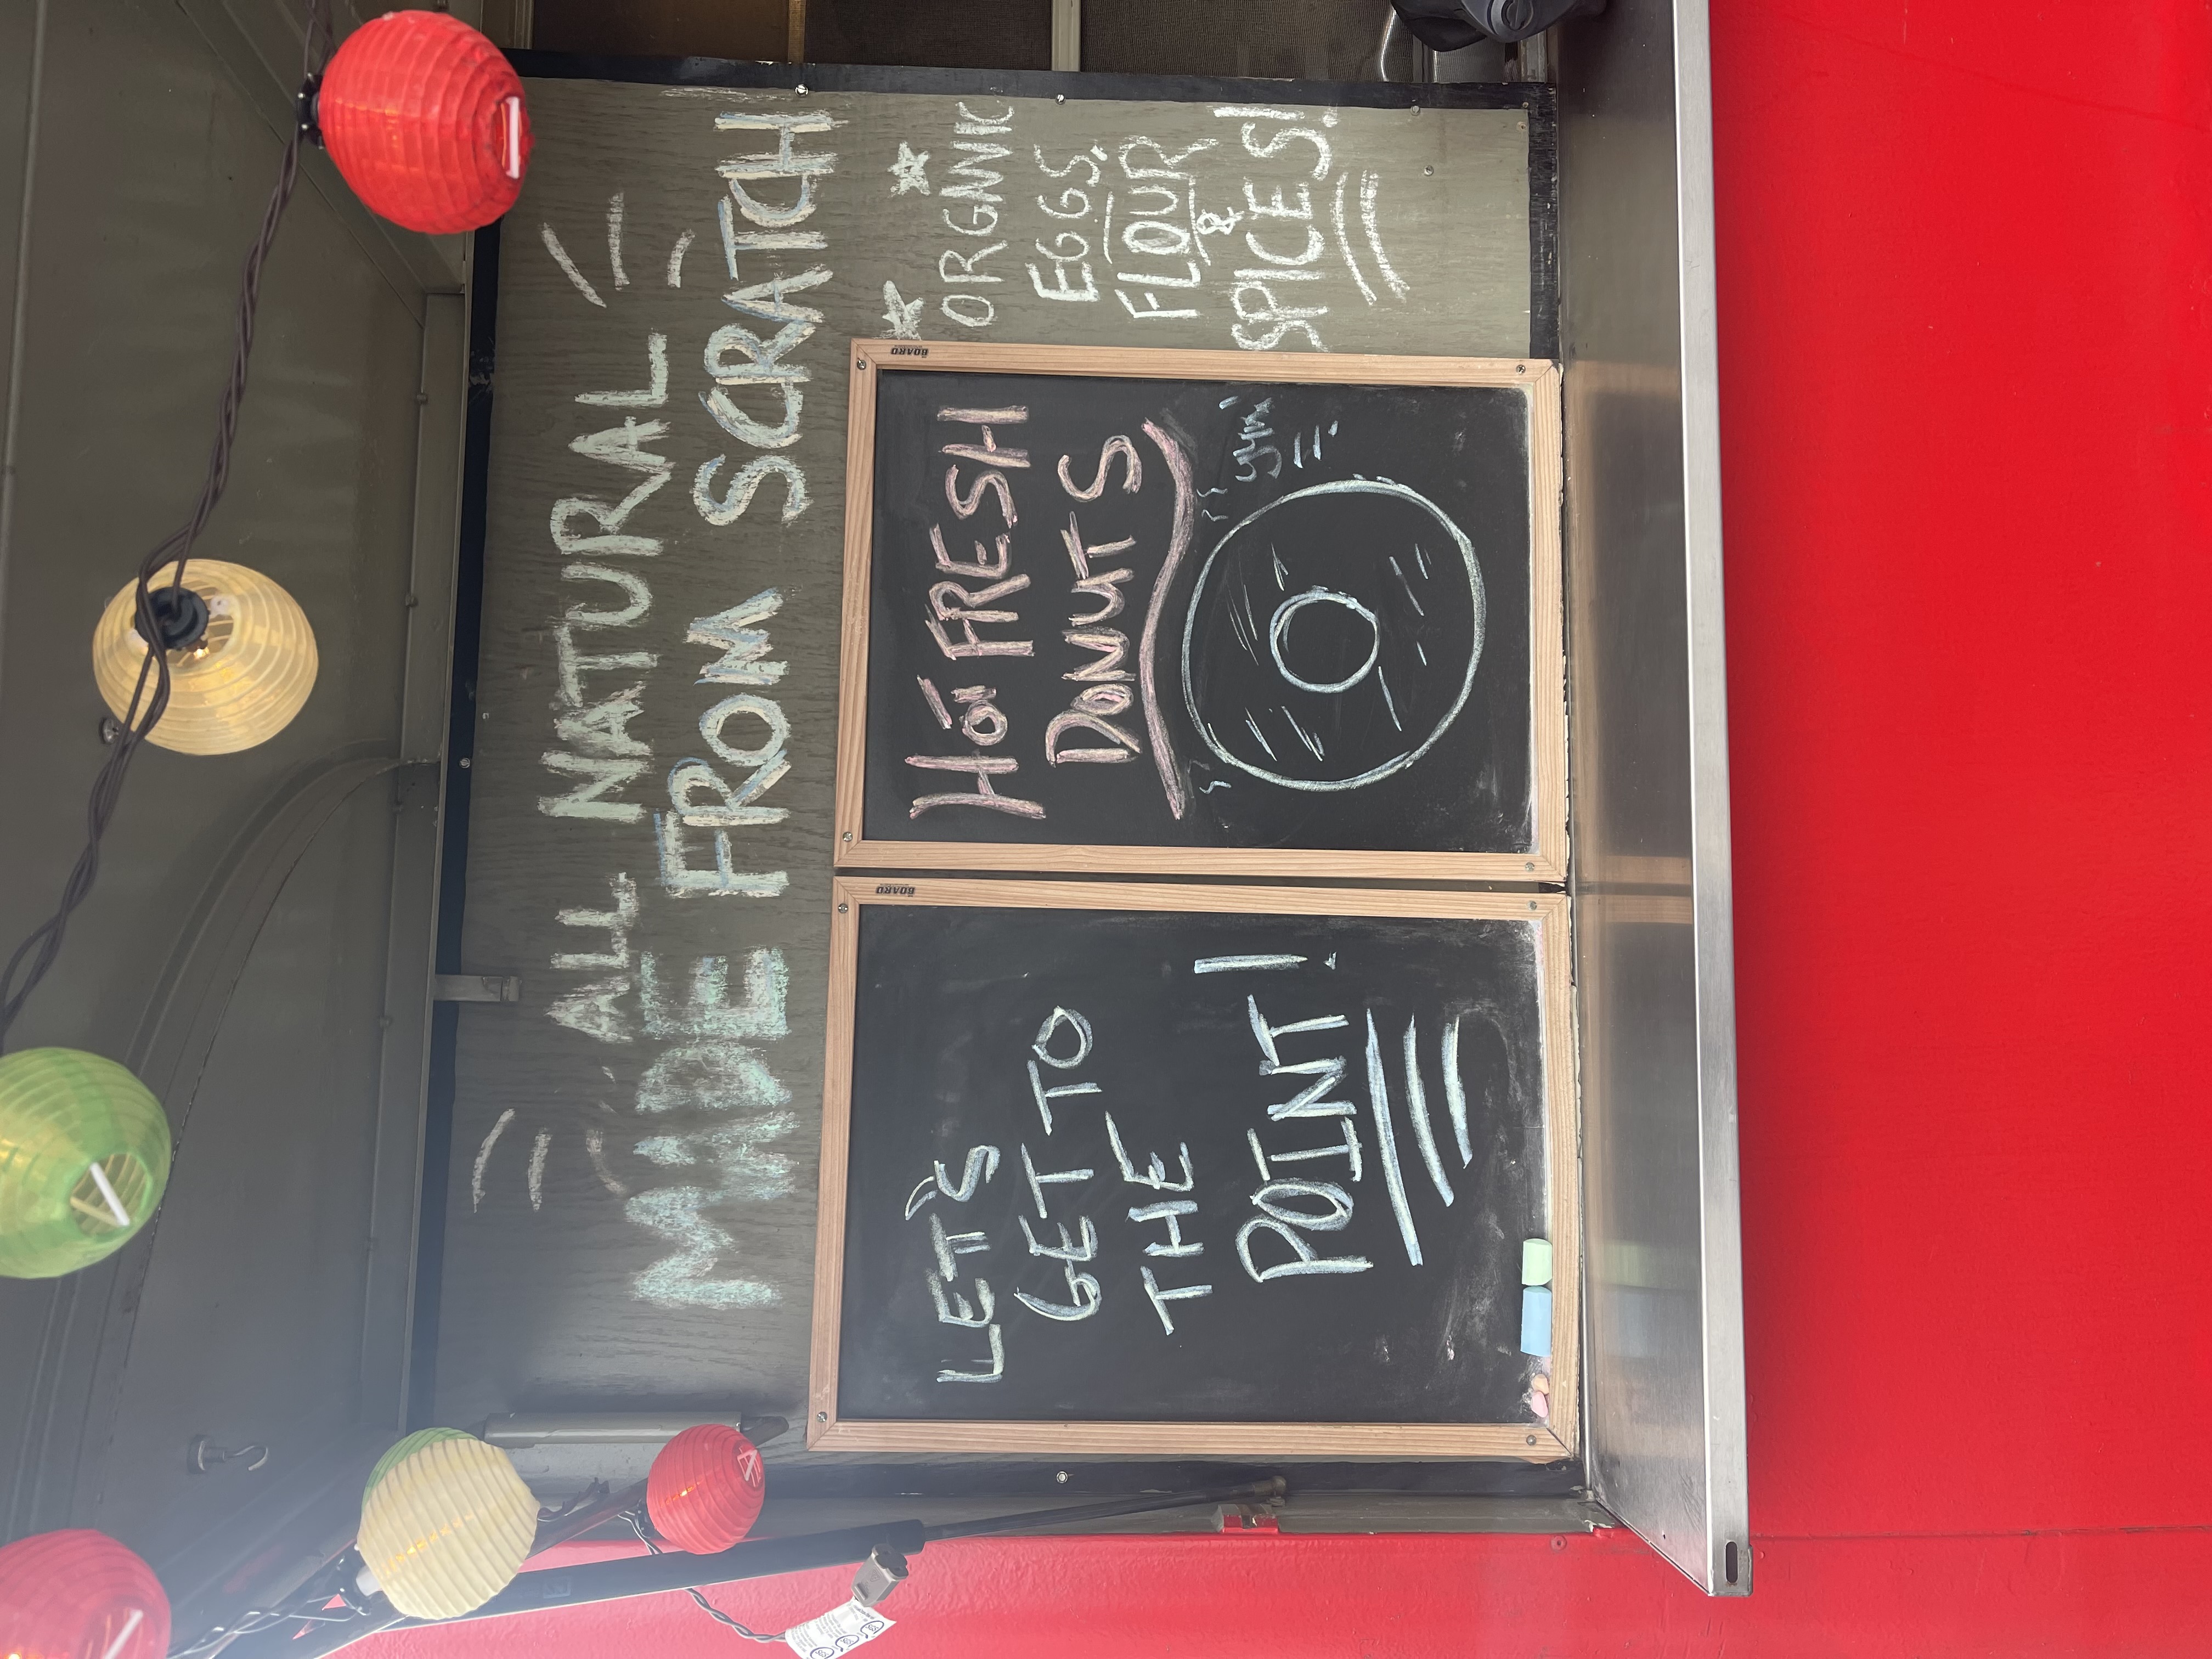 ALL NATURAL
MADE FROM SCRATCH
LET'S
GET TO
THE
POINT!
HOT FRESH
DONUTS
YUM
ORGNNIC
EGGS,
FLOUR
&
SPICES!
BOARD
BOARD